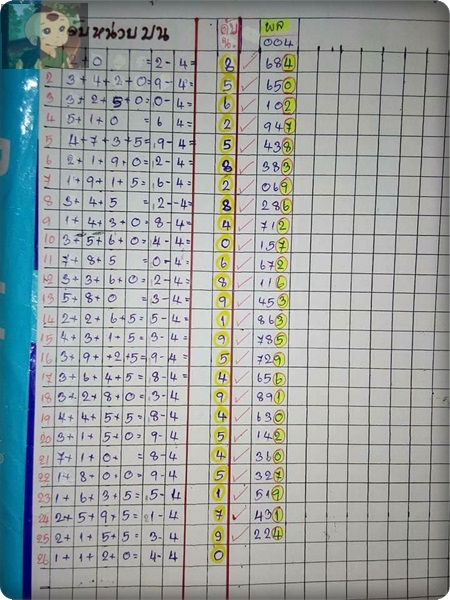 หน่วยบน ดับ ผล
น. 004
2+0 =2-4= 8 ✓ 684
2 3+4+2+0=9-4= 5 ✓ 650
3 3+2+5+0=0-4= 6 ✓ 102
4 5+1+0 =6 4= 2 ✓ 947
5 4+7+3+5=9-4= 5 ✓ 438
6 2+1+9+0=2-4= 8 ✓ 383
7 1+9+1+5=6-4= 2 ✓ 069
8 3+4+5 =2--4= 8 ✓ 286
9 1+4+3+0=8-4= 4 ✓ 712
10 3+5+6+0=4-4= 0 ✓ 157
11 7+8+5 =0-4= 6 ✓ 672
12 3+3+6+0=2-4= 8 ✓ 116
13 5+8+0 =3-4= 9 ✓ 453
14 2+2+6+5=5-4= 1 ✓ 863
15 4+3+1+5=3-4= 9 ✓ 785
16 3+9++2+5=9-4= 5 ✓ 729
17 3+6+4+5=8-4= 4 ✓ 656
18 3+2+8+0=3-4 9 ✓ 891
19 4+4+5+5=8-4 4 ✓ 630
20 3+1+5+0=9-4 5 ✓ 142
21 7+1+0+ =8-4 4 ✓ 360
22 1+8+0+0=9-4 5 ✓ 327
23 1+6+3+5=5-4 1 ✓ 519
24 2+5+9+5=1-4 7 ✓ 431
25 2+1+5+5=3-4 9 ✓ 224
26 1+1+2+0=4-4 0